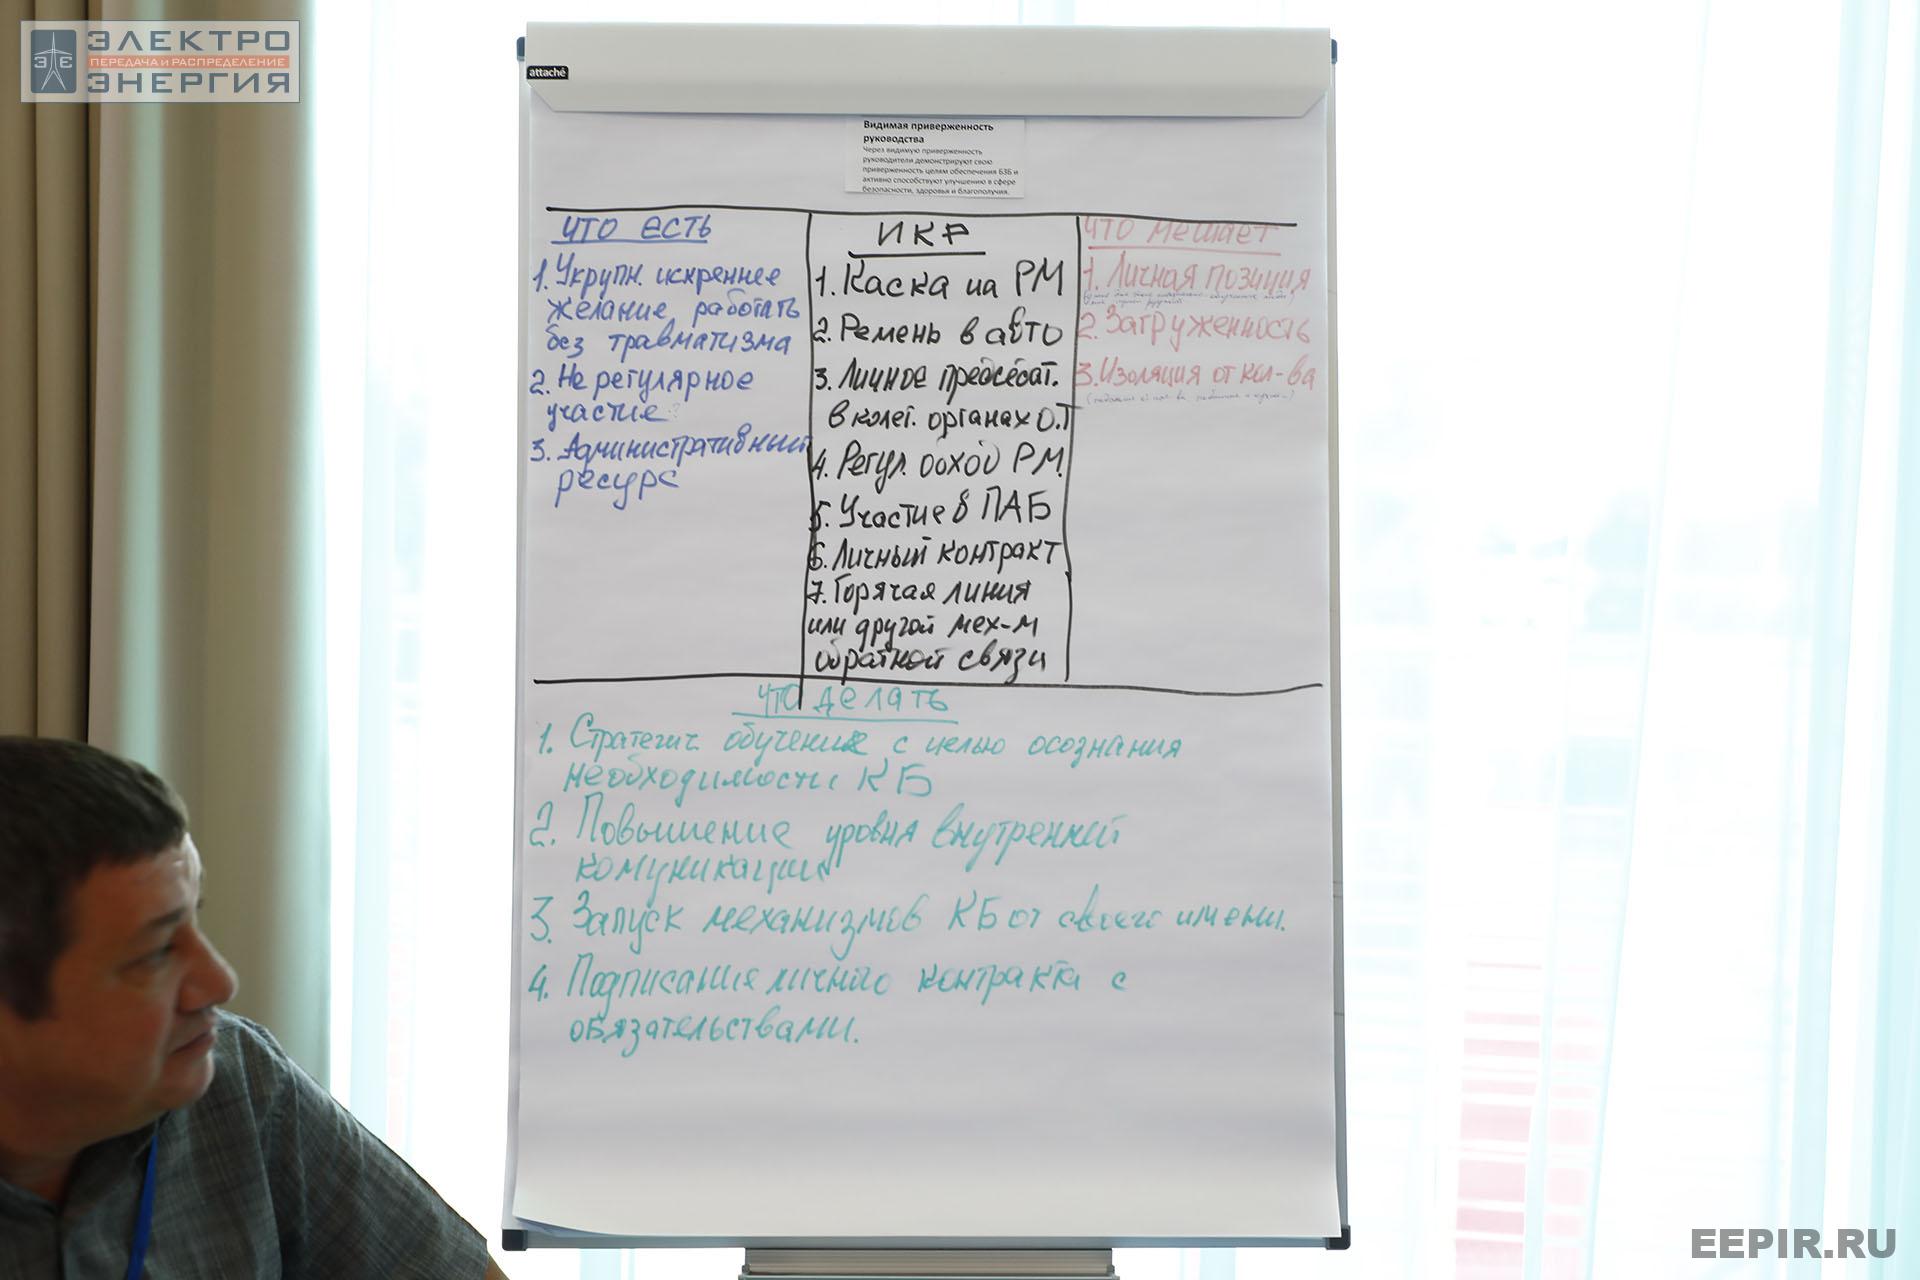 ЭЛЕКТРО
ПЕРЕДАЧА И РАСПРЕДЕЛЕНИЕ
ЭНЕРГИЯ
attaché
Видимая приверженность
руководства
Через видимую приверженность
руководители демонстрируют свою
приверженность целям обеспечения БЗБ и
активно способствуют улучшению в сфере
безопасности, здоровья и благополучия.
ЧТО ЕСТЬ
1. Укрупн. искреннее
желание работать
без травматизма
2. Не регулярное
участие?
3. Административный
ресурс
ИКР
1. Каска на РМ
2. Ремень в авто
3. Личное председат.
в колег. органах О.Т
4. Регул. обход РМ.
5. Участие в ПАБ
6. Личный контракт
7. Горячая линия
или другой мех-м
обратной связи
ЧТО МЕШАЕТ
1. Личная позиция
2. Загруженность
3. Изоляция от кол-ва
ЧТО ДЕЛАТЬ
1. Стратегич. обучение с целью осознания
необходимости КБ
2. Повышение уровня внутренней
комуникации
3. Запуск механизмов КБ от своего имени.
4. Подписание личного контракта с
обязательствами.
EEPIR.RU